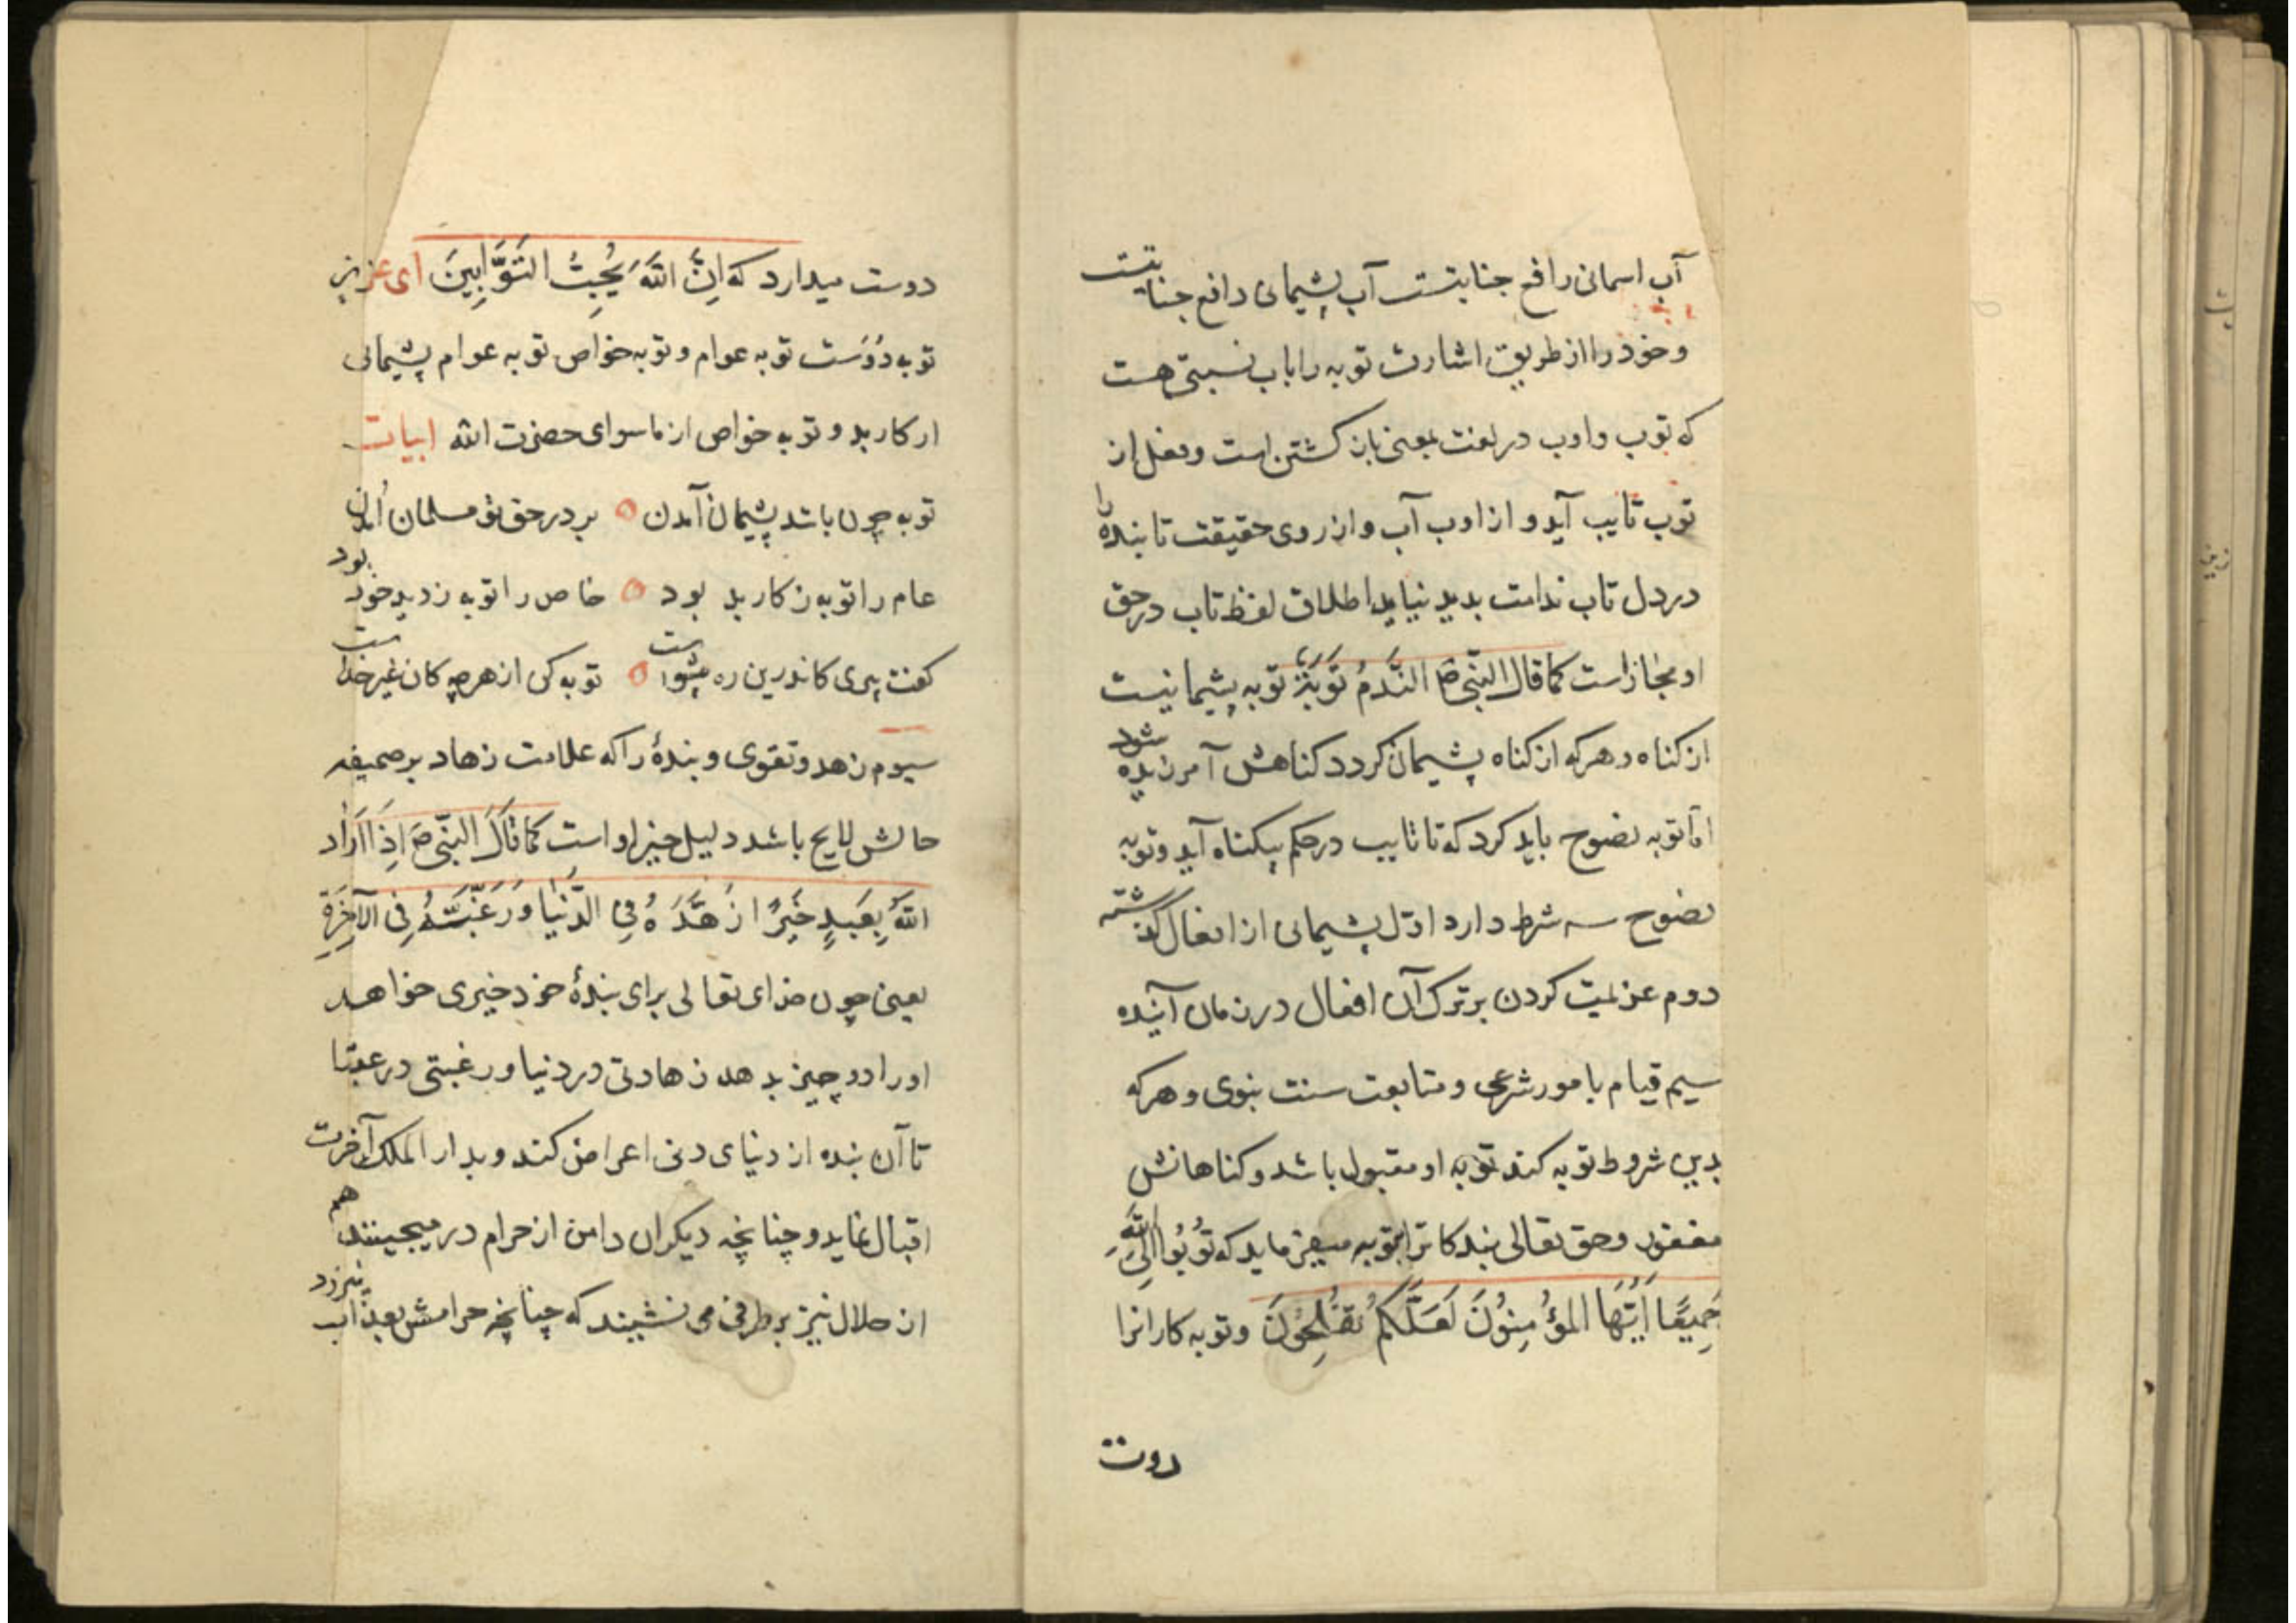 آب اسمانی رافع جنابتست آب پشیمانی دافع جنایتست
وخود را از طریق اشارت توبه را باب نسبتی هست
که توب واوب در لغت بمعنی باز کشتن است وفعل از
توب تایب آید و از اوب آب واز روی حقیقت تا بنده را
در دل تاب ندامت بدید نیاید اطلاق لفظ تاب در حق
او مجازاست کما قال النبی ص النَّدَمُ تَوْبَةٌ توبه پشیمانیست
از کناه و هرکه از کناه پشیمان کردد کناهش آمرزیده شود
امّا توبه نصوح باید کرد که تا تایب در حکم بیکناه آید وتوبه
نصوح سه شرط دارد اوّل پشیمانی از افعال کذشته
دوم عزیمت کردن بر ترک آن افعال در زمان آینده
سیم قیام بامور شرعی و متابعت سنت نبوی و هرکه
بدین شروط توبه کند توبه او مقبول باشد و کناهانش
مغفور وحق تعالی بندکانرا بتوبه میفرماید که تُوبُوا اِلَی اللَّهِ
جَمِیعًا اَیُّهَا المُؤْمِنُونَ لَعَلَّکُمْ تُفْلِحُونَ وتوبه کارانرا
دوست
دوست میدارد که اِنَّ اللَّهَ یُحِبُّ التَّوَّابِینَ ای عزیز
توبه دُوَست توبه عوام و توبه خواص توبه عوام پشیمانی
از کار بد و توبه خواص از ماسوای حضرت الله ابیات
توبه چون باشد پشیمان آمدن ○ بر در حق نو مسلمان آمدن
عام را توبه ز کار بد بود ○ خاص را توبه ز دید خود بود
کفت پیری کاندرین ره پیشواست ○ توبه کن از هرچه کان غیر خداست
سیوم زهد وتقوی و بندهٔ را که علامت زهاد بر صحیفه
حالش لایح باشد دلیل خیر او است کما قال النّبی ص اِذَا اَرَادَ
اللَّهُ بِعَبْدٍ خَیْرًا زَهَّدَهُ فِی الدُّنْیَا وَرَغَّبَتَهُ فِی الآخِرَةِ
یعنی چون خدای تعالی برای بندهٔ خود خیری خواهد
اورا دو چیز بدهد زهادتی در دنیا و رغبتی در عقبا
تا آن بنده از دنیای دنی اعراض کند و بدار الملک آخرت
اقبال نماید و چنانچه دیکران دامن از حرام درمیچینند هم
از حلال نیز بر طرفی می نشیند که چنانچه حرامش بعذاب نیرزد